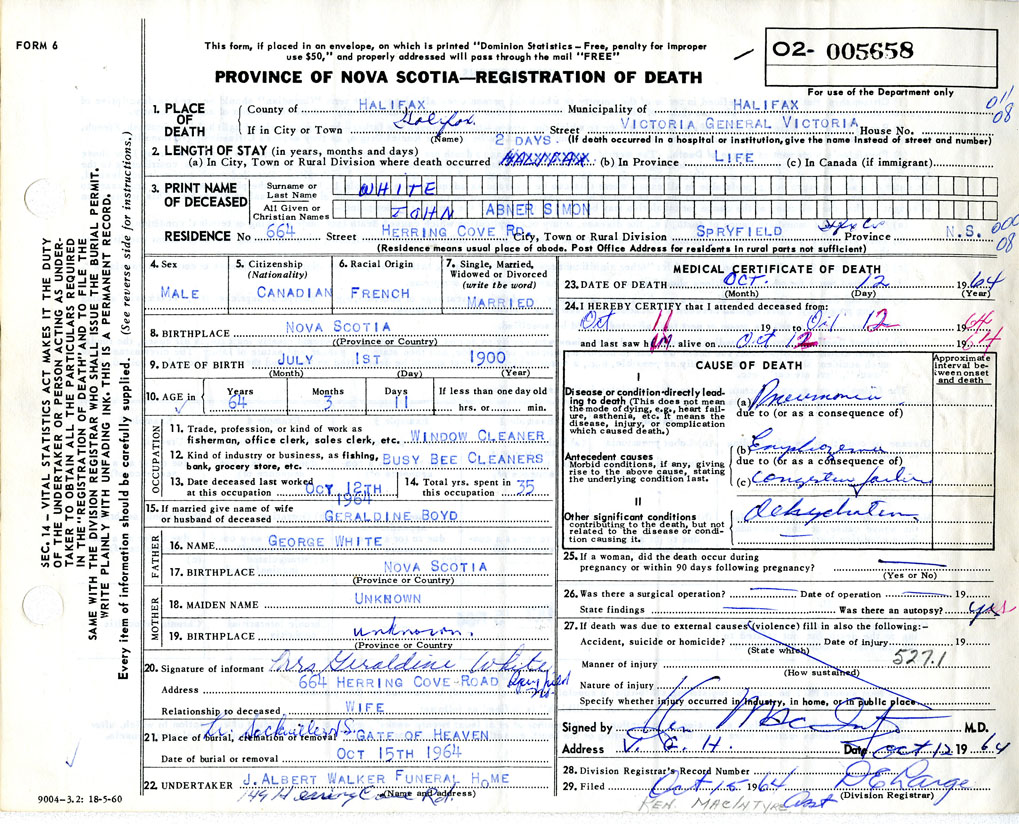 FORM 6
This form, if placed in an envelope, on which is printed "Dominion Statistics – Free, penalty for improper
use $50," and properly addressed will pass through the mail "FREE"
PROVINCE OF NOVA SCOTIA—REGISTRATION OF DEATH
02- 005658
For use of the Department only
011
08
1. PLACE OF DEATH
County of HALIFAX Municipality of HALIFAX
If in City or Town Halifax. Street VICTORIA GENERAL VICTORIA House No.
(Name) (If death occurred in a hospital or institution, give the name instead of street and number)
2. LENGTH OF STAY (in years, months and days) 2 DAYS.
(a) In City, Town or Rural Division where death occurred (b) In Province LIFE (c) In Canada (if immigrant)
3. PRINT NAME OF DECEASED
Surname or Last Name WHITE
All Given or Christian Names JOHN ABNER SIMON
RESIDENCE No 664 Street HERRING COVE RD. City, Town or Rural Division SPRYFIELD Hfx Co Province N.S.
000
08
(Residence means usual place of abode. Post Office Address for residents in rural parts not sufficient)
SEC. 14 – VITAL STATISTICS ACT MAKES IT THE DUTY
OF THE UNDERTAKER OR PERSON ACTING AS UNDER-
TAKER TO OBTAIN ALL THE PARTICULARS REQUIRED
IN THE "REGISTRATION OF DEATH" AND TO FILE THE
SAME WITH THE DIVISION REGISTRAR WHO SHALL ISSUE THE BURIAL PERMIT.
WRITE PLAINLY WITH UNFADING INK. THIS IS A PERMANENT RECORD.
Every item of information should be carefully supplied. (See reverse side for instructions.)
4. Sex
MALE
5. Citizenship
(Nationality)
CANADIAN
6. Racial Origin
FRENCH
7. Single, Married,
Widowed or Divorced
(write the word)
MARRIED
8. BIRTHPLACE NOVA SCOTIA
(Province or Country)
9. DATE OF BIRTH JULY 1ST 1900
(Month) (Day) (Year)
10. AGE in
Years 64
Months 3
Days 11
If less than one day old
hrs. or min.
OCCUPATION
11. Trade, profession, or kind of work as
fisherman, office clerk, sales clerk, etc. WINDOW CLEANER
12. Kind of industry or business, as fishing,
bank, grocery store, etc. BUSY BEE CLEANERS
13. Date deceased last worked
at this occupation OCT 12TH
1964
14. Total yrs. spent in
this occupation 35
15. If married give name of wife
or husband of deceased GERALDINE BOYD
FATHER
16. NAME GEORGE WHITE
17. BIRTHPLACE NOVA SCOTIA
(Province or Country)
MOTHER
18. MAIDEN NAME UNKNOWN
19. BIRTHPLACE unknown.
(Province or Country
20. Signature of informant Mrs Geraldine White
Address 664 HERRING COVE-ROAD Spryfield
Relationship to deceased WIFE
21. Place of burial, cremation or removal Lr. Sackville N.S. "GATE OF HEAVEN
Date of burial or removal OCT 15TH 1964
22. UNDERTAKER J. ALBERT WALKER FUNERAL HOME
149 Herring Cove Rd.
(Name and address)
9004–3.2: 18-5-60
MEDICAL CERTIFICATE OF DEATH
23. DATE OF DEATH OCT. 12 1964
(Month) (Day) (Year)
24. I HEREBY CERTIFY that I attended deceased from:
Oct 11 19 to Oct 12 1964
and last saw him alive on Oct 12 1964
CAUSE OF DEATH
Approximate
interval be-
tween onset
and death
I
Disease or condition directly lead-
ing to death (This does not mean
the mode of dying, e.g., heart fail-
ure, asthenia, etc. It means the
disease, injury, or complication
which caused death.)
(a) Pneumonia
due to (or as a consequence of)
Antecedent causes
Morbid conditions, if any, giving
rise to the above cause, stating
the underlying condition last.
(b) Emphysema
due to (or as a consequence of)
(c) Congestive failure
II
Other significant conditions
contributing to the death, but not
related to the disease or condi-
tion causing it.
dehydration
25. If a woman, did the death occur during
pregnancy or within 90 days following pregnancy?
(Yes or No)
26. Was there a surgical operation? Date of operation 19
State findings Was there an autopsy? yes
27. If death was due to external causes (violence) fill in also the following:–
Accident, suicide or homicide? Date of injury 19
(State which)
527.1
Manner of injury
(How sustained)
Nature of injury
Specify whether injury occurred in industry, in home, or in public place
Signed by Ken MacIntyre M.D.
Address V. G. H. Date Oct 12 1964
28. Division Registrar's Record Number
29. Filed Oct 15 1964 D E Large
(Division Registrar)
KEN. MACINTYRE Asst